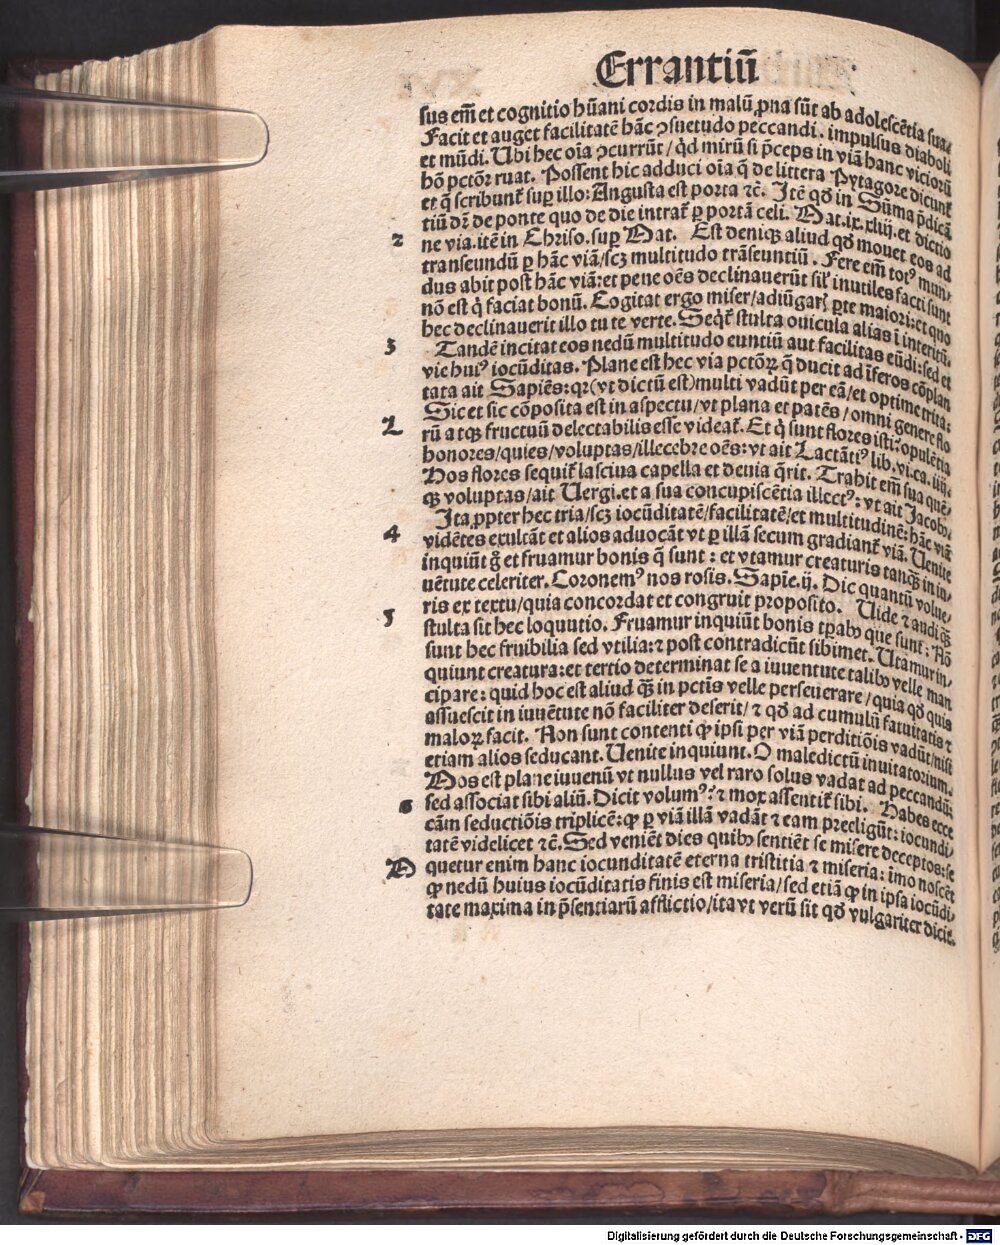 Errantiū
sus em̄ et cognitio hūani cordis in malū ꝓna sūt ab adolescētia sua⸗
Facit et auget facilitatē hāc ↄsuetudo peccandi. impulsus diaboli
et mūdi. Ubi hec oīa ↄcurrūt/ qd mirū si p̄ceps in viā hanc viciorū
hō pctōꝝ ruat. Possent hic adduci oīa q̄ de littera Pytagore dicunt᷑
et q̄ scribunt᷑ suꝑ illo: Angusta est porta ⁊c̄. Itē qď in Sūma p̄dicā
tiū dr̄ de ponte quo de die intrat᷑ ꝑ portā celi. Mat. ix. xliij. et dictio
2 ne via. itē in Chriso. suꝑ Mat. Est deniqꝫ aliud qď mouet eos ad
transeundū ꝑ hāc viā/ scꝫ multitudo trāseuntiū. Fere em̄ totꝰ mun⸗
dus abit post hāc viā: et pene oēs declinauerūt sil̄ inutiles facti sunt
nō est q̇ faciat bonū. Cogitat ergo miser/ adiūgar ꝑte maiori: et quo
hec declinauerit illo tu te verte. Seqt᷑ stulta ouicula alias ī interitū.
3 Tandē incitat eos nedū multitudo euntiū aut facilitas eūdi: sed et
vie huiꝰ iocūditas. Plane est hec via pctōꝝ q̄ ducit ad īferos cōplan
tata ait Sapiēs: qꝛ (vt dictū est) multi vadūt per eā/ et optime trita:
Sic et sic cōposita est in aspectu/ vt plana et patēs/ omni genere flo
2 rū atqꝫ fructuū delectabilis esse videat᷑. Et q̇ sunt flores isti? opulētia
honores/ quies/ voluptas/ illecebre oēs: vt ait Lactātiꝰ lib. vi. ca. iiij.
Hos flores sequit᷑ lasciua capella et deuia q̄rit. Trahit em̄ sua quē⸗
qꝫ voluptas/ ait Uergi. et a sua concupiscētia illectꝰ: vt ait Jacob.
Ita ꝓpter hec tria/ scꝫ iocūditatē/ facilitatē/ et multitudinē: hāc viā
4 vidētes exultāt et alios aduocāt vt ꝑ illā secum gradiant᷑ viā. Uenite
inquiūt g̊ et fruamur bonis q̄ sunt: et vtamur creaturis tanqꝫ in iu⸗
uētute celeriter. Coronemꝰ nos rosis. Sapīe. ij. Dic quantū volue⸗
ris ex textu/ quia concordat et congruit proposito. Uide ⁊ audi qꝫ̄
5 stulta sit hec loquutio. Fruamur inquiūt bonis tꝑabꝫ que sunt: Nō
sunt hec fruibilia sed vtilia: ⁊ post contradicūt sibimet. Utamur in⸗
quiunt creatura: et tertio determinat se a iuuentute talibꝫ velle man
cipare: quid hoc est aliud qꝫ̄ in pctīs velle perseuerare/ quia qď quis
assuescit in iuuētute nō faciliter deserit/ ⁊ qď ad cumulū fatuitatis ⁊
maloꝝ facit. Non sunt contenti ꝙ ipsi per viā perditiōis vadūt/ nisi
etiam alios seducant. Uenite inquiunt. O maledictū inuitatorium.
Mos est plane iuuenū vt nullus vel raro solus vadat ad peccandū:
6 sed associat sibi aliū. Dicit volumꝰ: ⁊ mox assentit᷑ sibi. Habes ecce
cām seductiōis triplicē: ꝙ ꝑ viā illā vadāt ⁊ eam preeligūt: iocundi⸗
tatē videlicet ⁊c̄. Sed veniēt dies quibꝫ sentiēt se misere deceptos: se
D quetur enim hanc iocunditatē eterna tristitia ⁊ miseria: īmo noscēt
ꝙ nedū huius iocūditatis finis est miseria/ sed etiā ꝙ in ipsa iocūdi⸗
tate maxima in p̄sentiarū afflictio/ ita vt verū sit qď vulgariter dicit᷑.
Digitalisierung gefördert durch die Deutsche Forschungsgemeinschaft - DFG